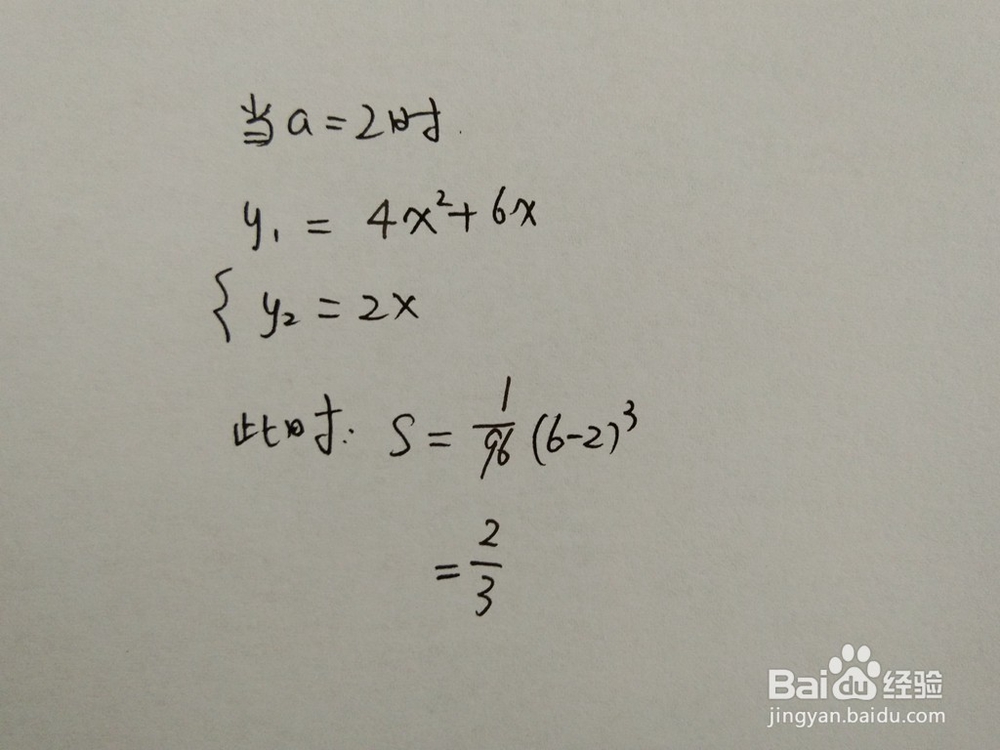 当a=2时.
y₁ = 4x²+6x
{ y₂ = 2x
此时. S = 1/96 (6-2)³
= 2/3
Baidu 经验
jingyan.baidu.com